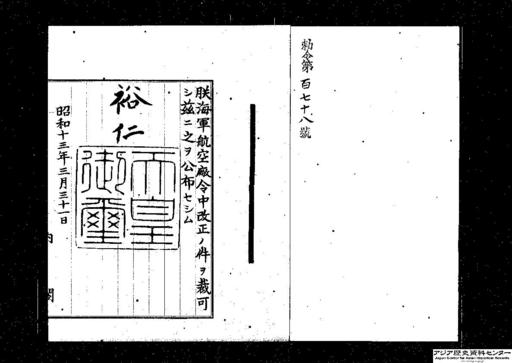 勅令第百七十八號
朕海軍航空廠令中改正ノ件ヲ裁可
シ茲ニ之ヲ公布セシム
裕仁
天皇
御璽
昭和十三年三月三十一日
内閣
アジア歴史資料センター
Japan Center for Asian Historical Records